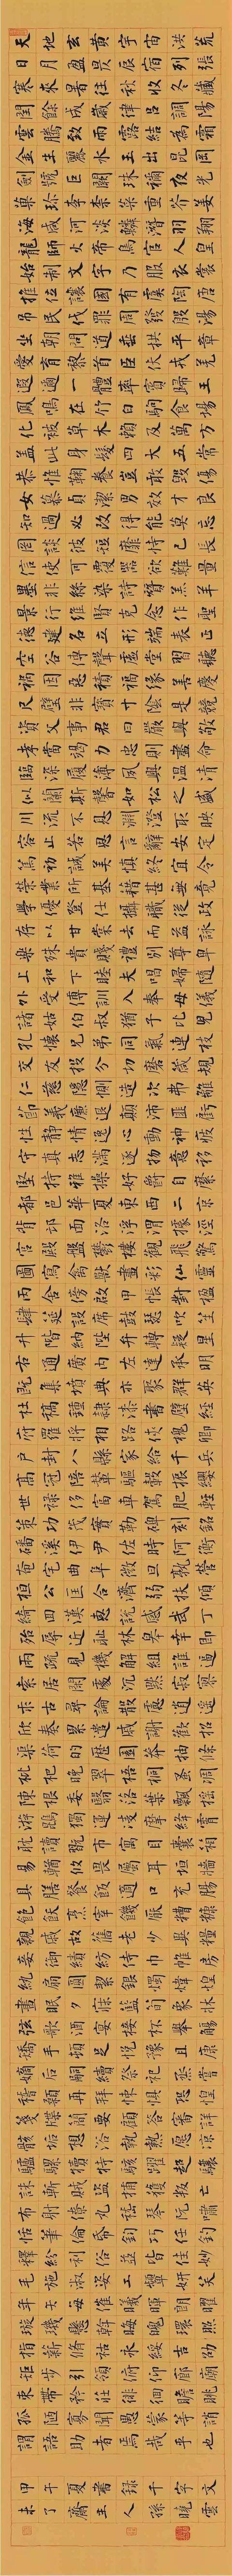 天地玄黃宇宙洪荒
日月盈昃辰宿列張
寒來暑往秋收冬藏
閏餘成歲律呂調陽
雲騰致雨露結為霜
金生麗水玉出崑岡
劍號巨闕珠稱夜光
菓珍李柰菜重芥薑
海鹹河淡鱗潛羽翔
龍師火帝鳥官人皇
始制文字乃服衣裳
推位讓國有虞陶唐
吊民伐罪周發殷湯
坐朝問道垂拱平章
愛育黎首臣伏戎羌
遐邇一體率賓歸王
鳳鳴在竹白駒食場
化被草木賴及萬方
蓋此身髮四大五常
恭惟鞠養豈敢毀傷
女慕貞潔男效才良
知過必改得能莫忘
罔談彼短靡恃己長
信使可覆器欲難量
墨悲絲染詩讚羔羊
景行維賢克念作聖
德建名立形端表正
空谷傳聲虛堂習聽
禍因惡積福緣善慶
尺璧非寶寸陰是競
資父事君曰嚴與敬
孝當竭力忠則盡命
臨深履薄夙興溫凊
似蘭斯馨如松之盛
川流不息淵澄取映
容止若思言辭安定
篤初誠美慎終宜令
榮業所基籍甚無竟
學優登仕攝職從政
存以甘棠去而益詠
樂殊貴賤禮別尊卑
上和下睦夫唱婦隨
外受傅訓入奉母儀
諸姑伯叔猶子比兒
孔懷兄弟同氣連枝
交友投分切磨箴規
仁慈隱惻造次弗離
節義廉退顛沛匪虧
性靜情逸心動神疲
守真志滿逐物意移
堅持雅操好爵自縻
都邑華夏東西二京
背邙面洛浮渭據涇
宮殿盤鬱樓觀飛驚
圖寫禽獸畫彩仙靈
丙舍傍啟甲帳對楹
肆筵設席鼓瑟吹笙
升階納陛弁轉疑星
右通廣內左達承明
既集墳典亦聚群英
杜稿鍾隸漆書壁經
府羅將相路俠槐卿
戶封八縣家給千兵
高冠陪輦驅轂振纓
世祿侈富車駕肥輕
策功茂實勒碑刻銘
磻溪伊尹佐時阿衡
奄宅曲阜微旦孰營
桓公匡合濟弱扶傾
綺回漢惠說感武丁
殆辱近恥林皋幸即
兩疏見機解組誰逼
索居閑處沉默寂寥
求古尋論散慮逍遙
欣奏累遣慼謝歡招
渠荷的歷園莽抽條
枇杷晚翠梧桐早凋
陳根委翳落葉飄颻
游鵾獨運凌摩絳霄
耽讀翫市寓目囊箱
易輶攸畏屬耳垣牆
具膳餐飯適口充腸
飽飫烹宰飢厭糟糠
親戚故舊老少異糧
妾御績紡侍巾帷房
紈扇圓潔銀燭煒煌
晝眠夕寐藍筍象床
弦歌酒宴接杯舉觴
矯手頓足悅豫且康
嫡後嗣續祭祀烝嘗
稽顙再拜悚懼恐惶
箋牒簡要顧答審詳
骸垢想浴執熱願涼
驢騾犢特駭躍超驤
誅斬賊盜捕獲叛亡
布射僚丸嵇琴阮嘯
恬筆倫紙鈞巧任釣
釋紛利俗並皆佳妙
毛施淑姿工顰妍笑
年矢每催曦暉朗曜
璇璣懸斡晦魄環照
指薪修祜永綏吉劭
矩步引領俯仰廊廟
束帶矜莊徘徊瞻眺
孤陋寡聞愚蒙等誚
謂語助者焉哉乎也
甲午夏書錄千字文
未了齋主人孫曉雲